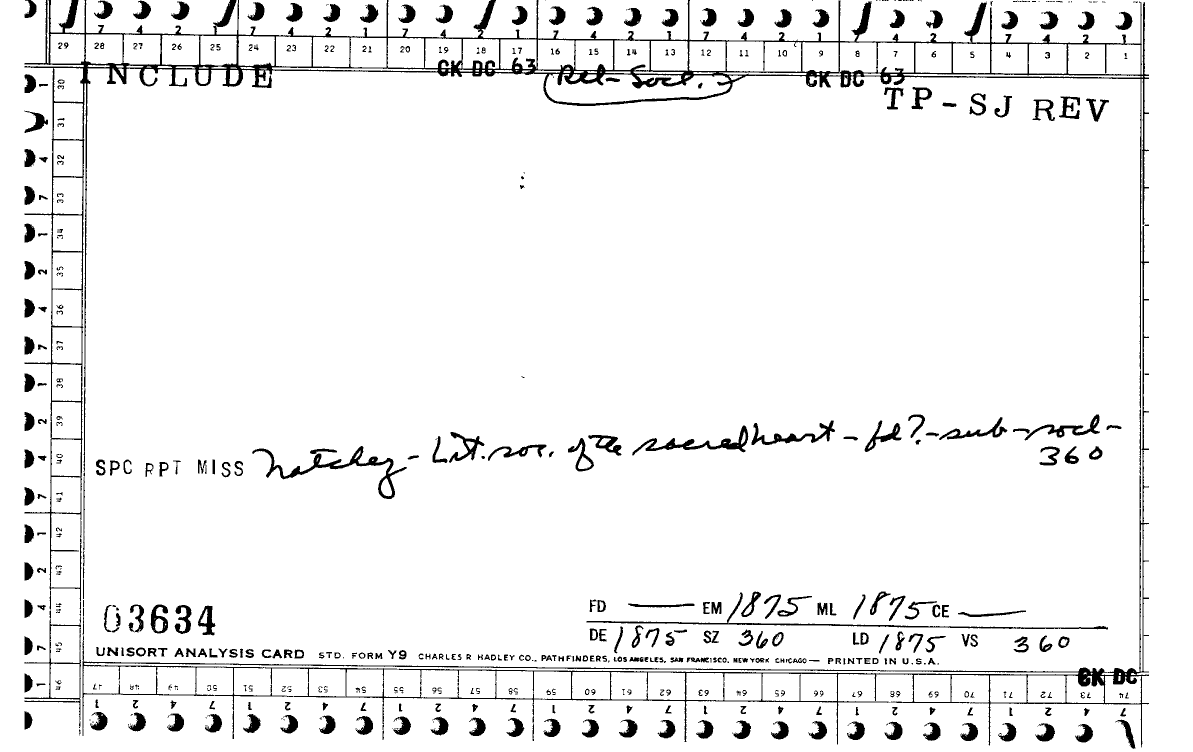 7 4 2 1 7 4 2 1 7 4 2 1 7 4 2 1 7 4 2 1 7 4 2 1 7 4 2 1
29 28 27 26 25 24 23 22 21 20 19 18 17 16 15 14 13 12 11 10 9 8 7 6 5 4 3 2 1
INCLUDE CK DC 63 (Rel-Socl.) CK DC 63
TP-SJ REV
1 30
31
4 32
7 33
1 34
2 35
4 36
7 37
1 38
2 39
4 40
7 41
1 42
2 43
4 44
7 45
1 46
SPC RPT MISS Natchez - Lit. soc. of the sacred heart - fd?. - sub - socl -
360
03634
FD — EM 1875 ML 1875 CE —
DE 1875 SZ 360 LD 1875 VS 360
UNISORT ANALYSIS CARD STD. FORM Y9 CHARLES R HADLEY CO., PATHFINDERS, LOS ANGELES, SAN FRANCISCO, NEW YORK CHICAGO — PRINTED IN U.S.A.
CK DC
47 48 49 50 51 52 53 54 55 56 57 58 59 60 61 62 63 64 65 66 67 68 69 70 71 72 73 74
1 2 4 7 1 2 4 7 1 2 4 7 1 2 4 7 1 2 4 7 1 2 4 7 1 2 4 7